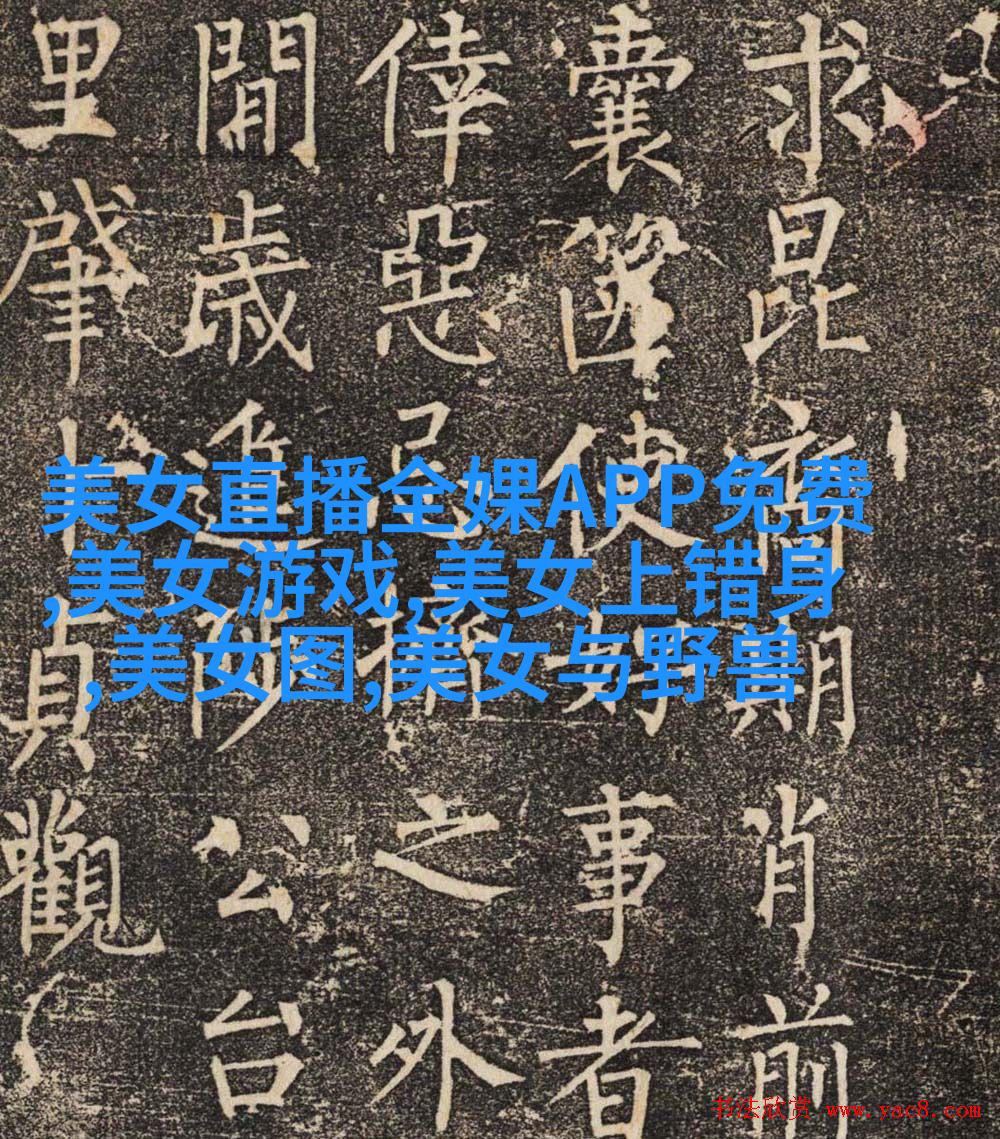 求昆裔期肖前
囊篋使好事者
倖惡忌擠之外
閒歲進陟公台
里肇十貞觀
美女直播全婐APP免费
,美女游戏,美女上错身
,美女图,美女与野兽
书法欣赏 www.yac8.com